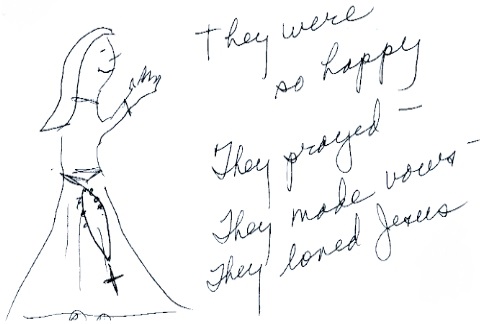 They were
so happy
They prayed –
They made vows –
They loved Jesus